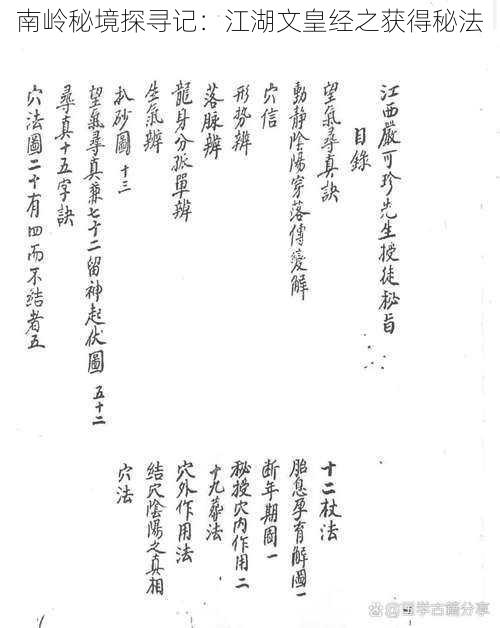 南岭秘境探寻记：江湖文皇经之获得秘法
江西嚴可珍先生授徒秘旨
目錄
望氣尋真訣
動靜陰陽穿落傳變解
穴信
形势辨
落脉辨
龍身分孤單辨
生氣辨
扒砂圖 十三
望氣尋真兼七十二留神起伏圖 五十二
尋真十五字訣
穴法圖二十有四而不结者五
十二杖法
胎息孕育解圖一
断年期圖一
秘授穴内作用二
十九葬法
穴外作用法
结穴陰陽之真相
穴法